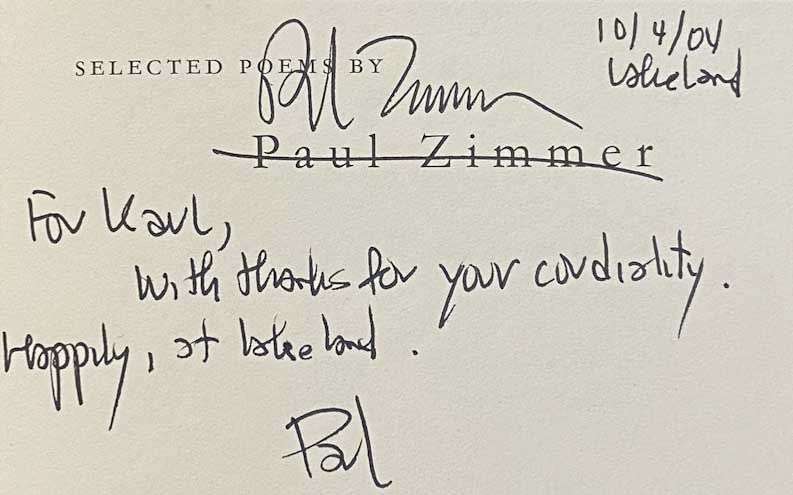 10/4/04
Lakeland
SELECTED POEMS BY
Paul Zimmer
Paul Zimmer
For Karl,
With thanks for your cordiality.
Happily, at Lakeland.
Paul